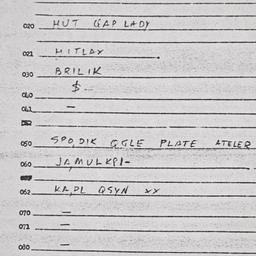 020 HUT GAP LADY
021 HITLAY .
030 BRILIK
040 $ --
041 –
050 SPO,DIK GGLE PLATE ATELER
060 JA,MULKPI-
062 KA,DL QSYN XX
070 –
071 –
080 –